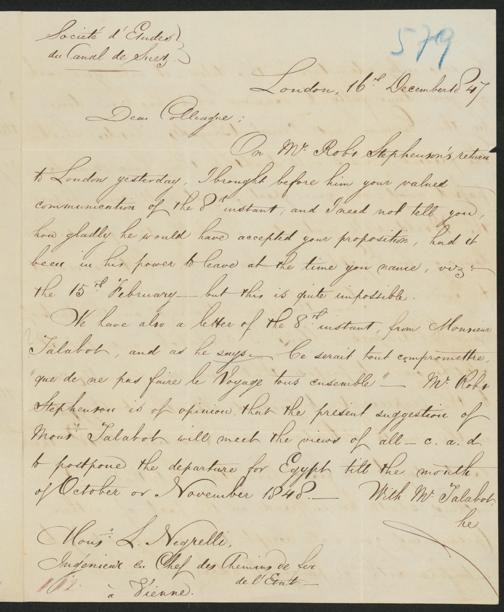 Societé d'Etudes
du Canal de Suez
579
London, 16th December 1847
Dear Colleague;
On Mr. Robt Stephenson's return
to London yesterday, I brought before him your valued
communication of the 8th instant, and I need not tell you,
how gladly he would have accepted your proposition, had it
been in his power to leave at the time you name, viz:
the 15th February — but this is quite impossible.
We have also a letter of the 8th instant, from Monsieur
Talabot, and as he says — "Ce serait tout compromettre
"que de ne pas faire le Voyage tous ensemble" — Mr Robt
Stephenson is of opinion that the present suggestion of
Monsr Talabot will meet the views of all — c. a. d.
to postpone the departure for Egypt till the month
of October or November 1848. — With Mr Talabot
he
Monsr. L. Negrelli.
Ingénieur en Chef des Chemins de fer
de l'Etat
à Vienne.